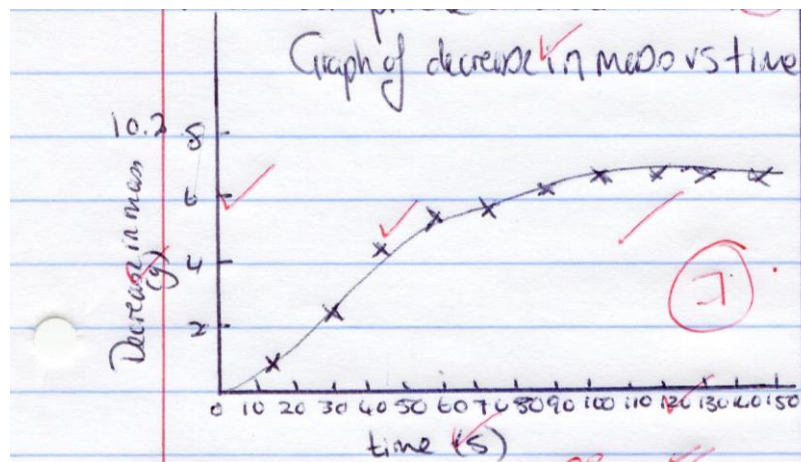 Graph of decrease in mass vs time
10.2
Decrease in mass
(g)
8
6
4
2
0 10 20 30 40 50 60 70 80 90 100 110 120 130 140 150
time (s)
7